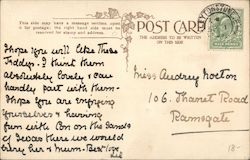 This side may have a message written upon
it for postage; the right hand side must be
reserved for stamp and address.
POST CARD
THE ADDRESS TO BE WRITTEN
ON THIS SIDE
HALF PENNY
I hope you will like these
Teddys. I think them
absolutely lovely & can
hardly part with them.
Hope you are enjoying
yourselves & having
fun with Con on the Sands
of Dear there we would
every her & Mum. Best love
Miss Audrey Norton
106. Thanet Road
Ramsgate
18-